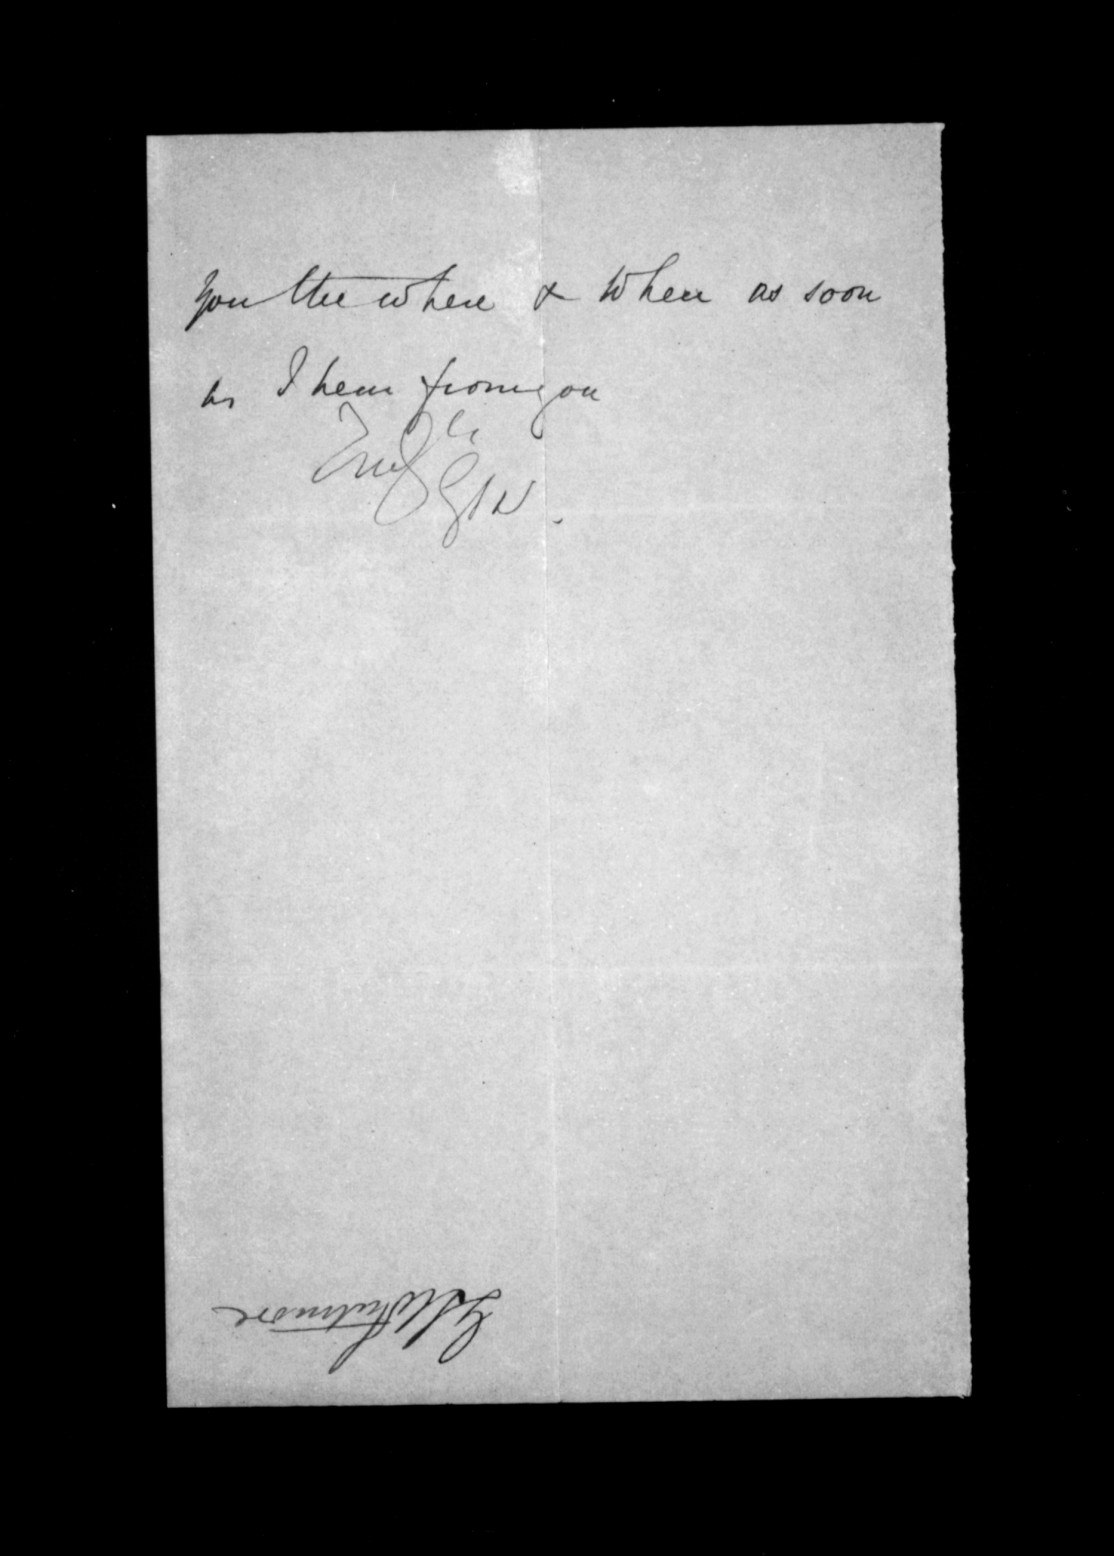 you the where & when as soon
as I hear from you
Truly
GSW.
GS Whitmore